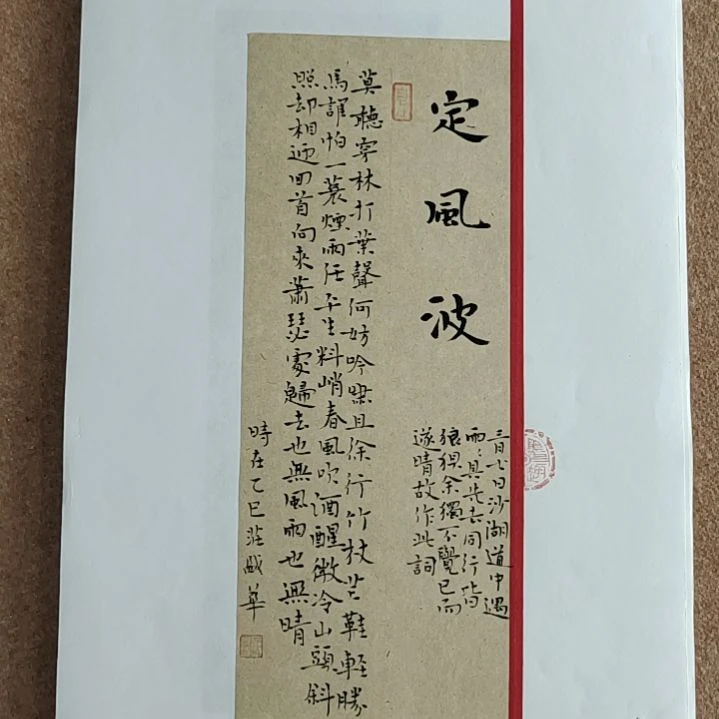 定風波
三月七日沙湖道中遇
雨〻具先去同行皆
狼狽余獨不覺已而
遂晴故作此詞
莫聽穿林打葉聲何妨吟嘯且徐行竹杖芒鞋輕勝
馬誰怕一蓑煙雨任平生料峭春風吹酒醒微冷山頭斜
照却相迎回首向來蕭瑟處歸去也無風雨也無晴
時在乙巳莊華